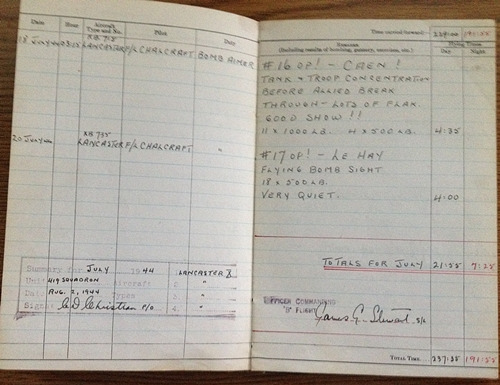 Date Hour Aircraft Type and No. Pilot Duty
KB 715
18 July LANCASTER F/L CHALCRAFT BOMB AIMER
KB 735
20 July LANCASTER F/L CHALCRAFT "
Summary for JULY 1944 LANCASTER X
Unit 419 SQUADRON Aircraft 2. "
Date AUG. 2, 1944 Types 3. "
Signature F/O 4. "
Time carried forward:
REMARKS Flying Times
(Including results of bombing, gunnery, exercises, etc.) Day Night
#16 OP! - CAEN!
TANK + TROOP CONCENTRATION
BEFORE ALLIED BREAK
THROUGH - LOTS OF FLAK.
GOOD SHOW!!
11 X 1000 LB. 4 X 500 LB. 4:35
#17 OP! - LE HAY
FLYING BOMB SIGHT
18 X 500 LB.
VERY QUIET. 4:00
TOTALS FOR JULY
OFFICER COMMANDING
"B" FLIGHT James G. Stewart S/L
TOTAL TIME